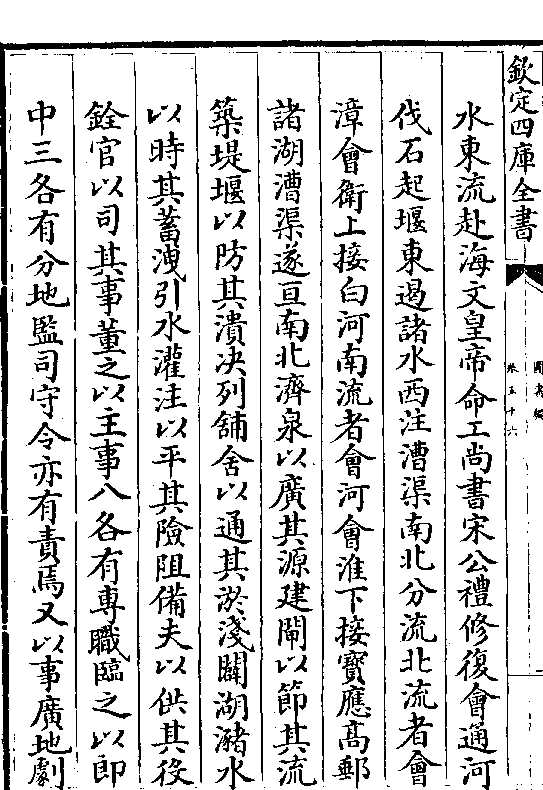 欽定四庫全書
圖書編
卷五十六
水東流赴海文皇帝命工尚書宋公禮修復會通河
伐石起堰東遏諸水西注漕渠南北分流北流者會
漳會衛上接白河南流者會河會淮下接寳應髙郵
諸湖漕渠遂亘南北濟泉以廣其源建閘以節其流
築堤堰以防其潰决列舗舍以通其淤淺闢湖潴水
以時其蓄洩引水灌注以平其險阻備夫以供其役
銓官以司其事董之以主事八各有專職臨之以郎
中三各有分地監司守令亦有責焉又以事廣地劇